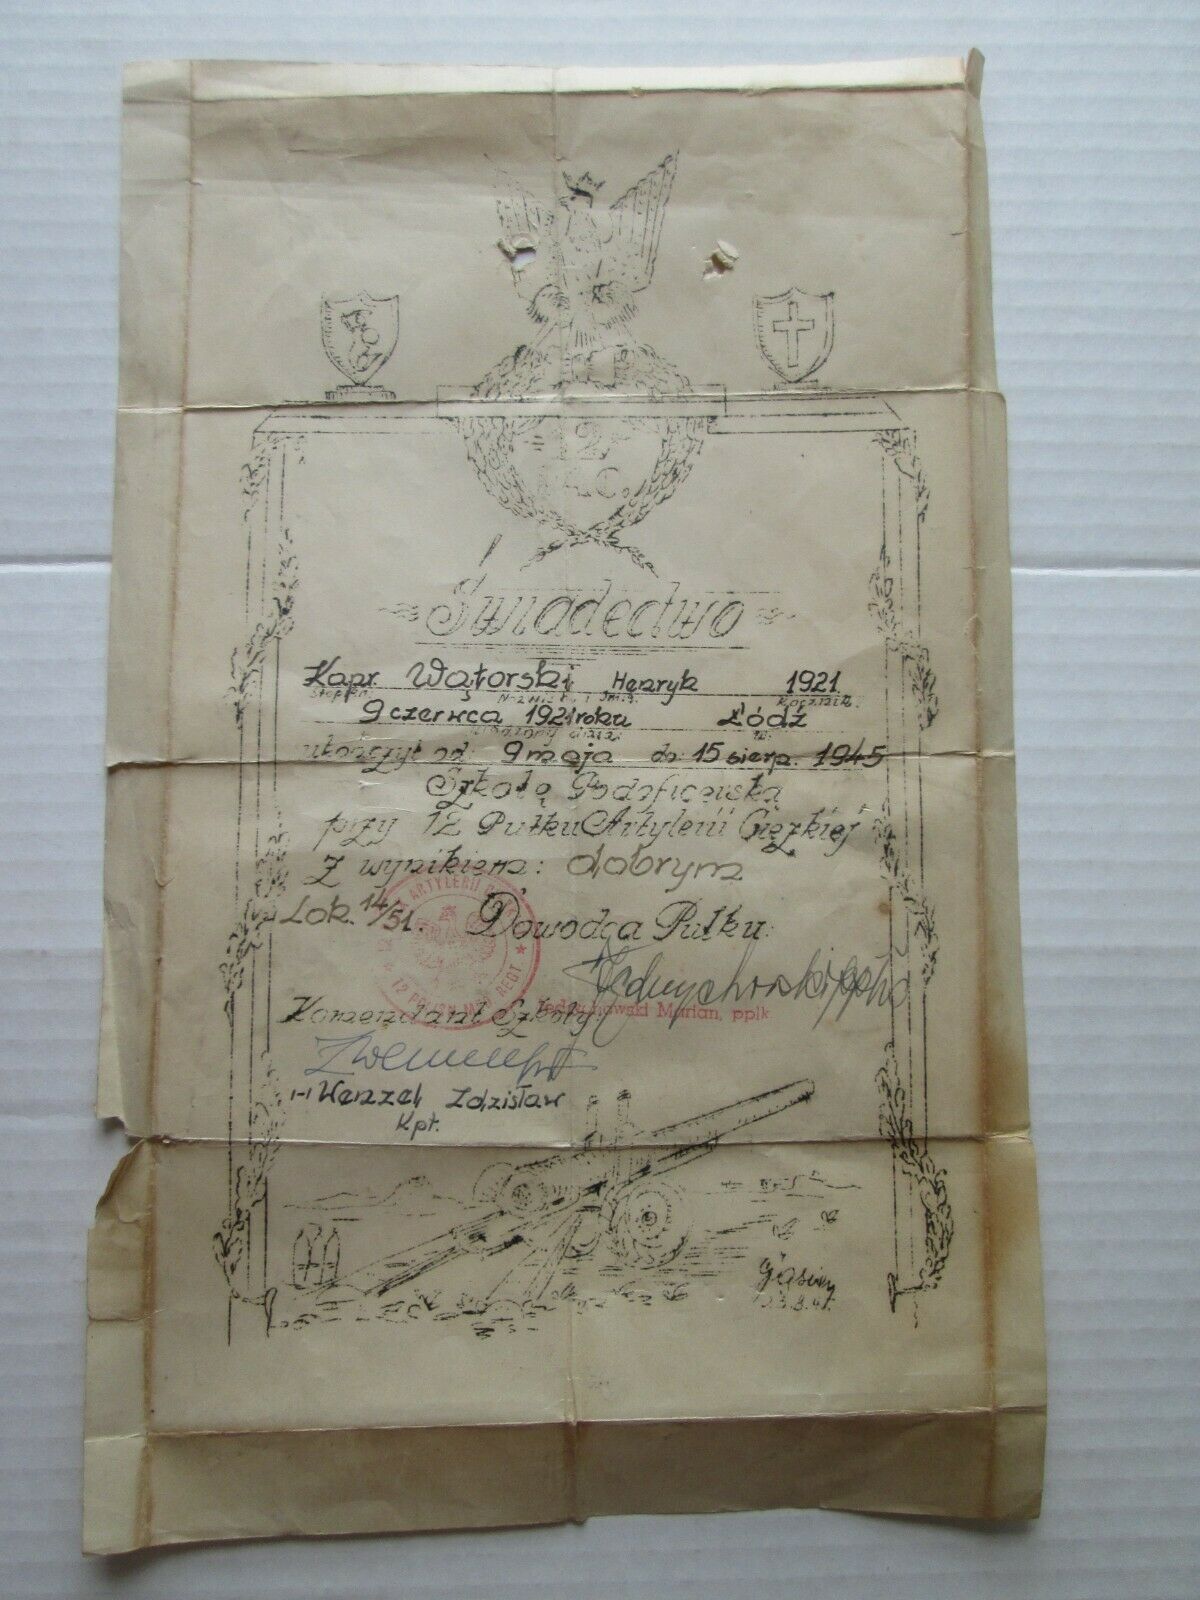 12
P.A.C.
Świadectwo
Kapr. Wątorski Henryk 1921
Stopień Nazwisko i Imię Rocznik
9 czerwca 1921 roku Łódź
urodzony dnia: w:
ukończył od: 9 maja do: 15 sierp. 1945
Szkołę Podoficerską
przy 12 Pułku Artylerii Ciężkiej
z wynikiem: dobrym
Lok. 14/51.
Dowódca Pułku:
ARTYLERII
12 POLISH REGT
Marian, ppłk.
Komendant Szkoły
/-/ Wenzel Zdzisław
Kpt.